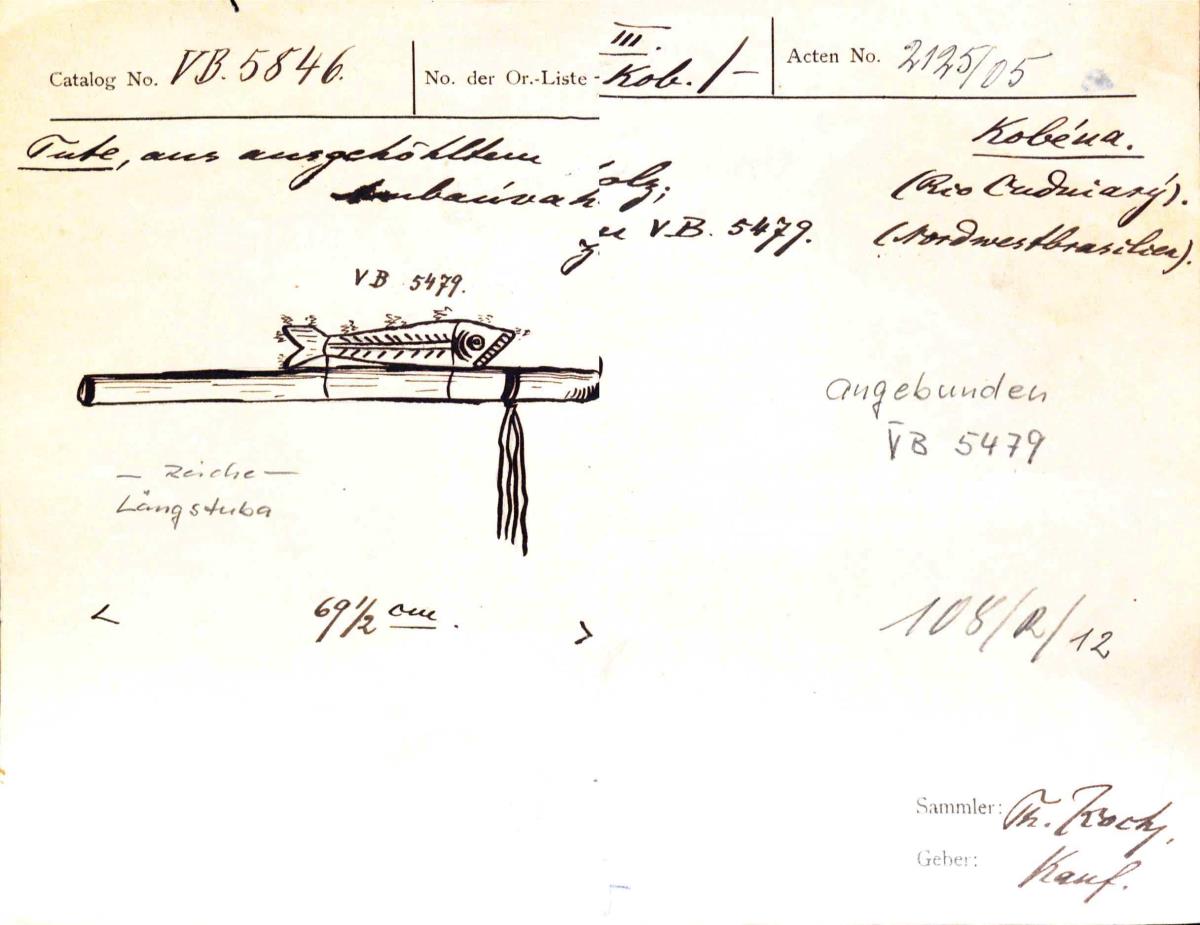 Catalog No. VB. 5846. No. der Or.-Liste - III. Kob. /- Acten No. 2125/05
Tute, aus ausgehöhltem Kobéua.
Ambaúvaholz; (Rio Cuduiarý).
zu VB. 5479. (Nordwestbrasilien).
VB 5479.
angebunden
VB 5479
Längstuba
< 69 1/2 cm. >
108/R/12
Sammler: Th. Koch,
Geber: Kauf.